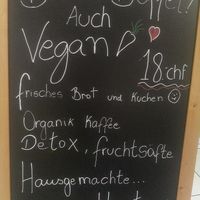 Buffet!
Auch
Vegan
18.chf
frisches Brot und Kuchen
Organik Kaffee
Detox, fruchtsäfte
Hausgemachte...